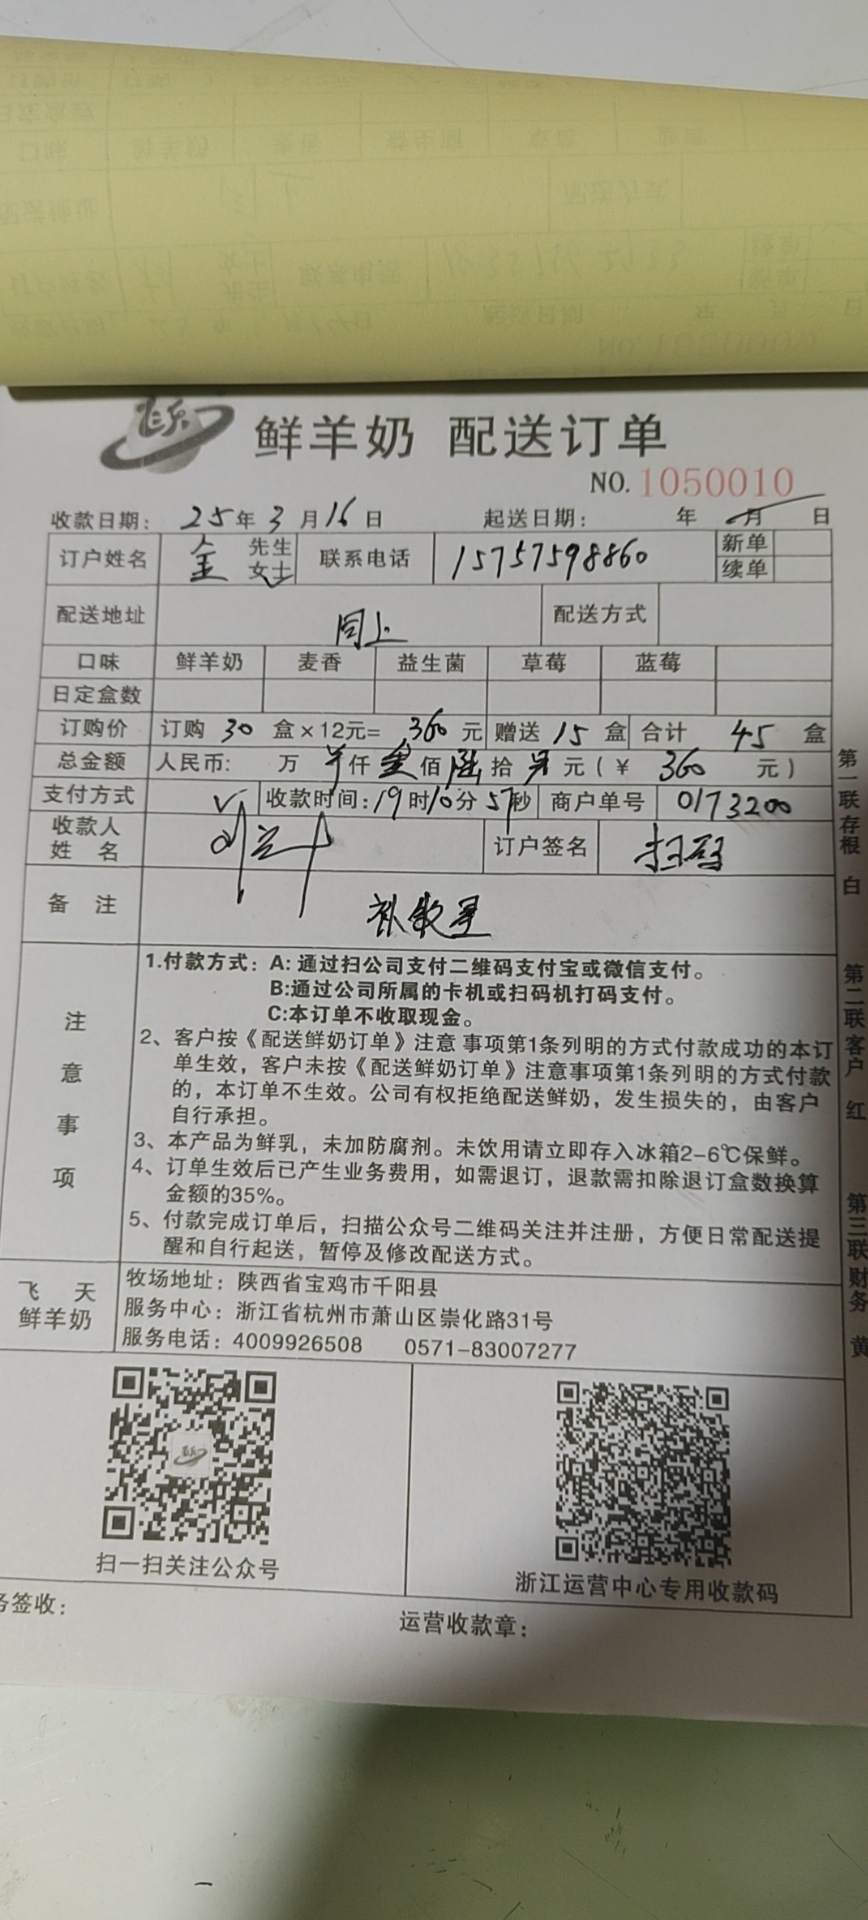 飞天
鲜羊奶 配送订单
NO.1050010
收款日期：25年3月16日 起送日期： 年 月 日
订户姓名 金 先生 女士 联系电话 15757598860 新单 续单
配送地址 同上 配送方式
口味 鲜羊奶 麦香 益生菌 草莓 蓝莓
日定盒数
订购价 订购30盒×12元=360元 赠送15盒 合计45盒
总金额 人民币： 万 仟 叁佰 陆拾 元（￥360元）
支付方式 收款时间：19时10分57秒 商户单号 0173200
收款人姓名 订户签名 扫码
备 注 补数量
注意事项
1.付款方式：A：通过扫公司支付二维码支付宝或微信支付。
B:通过公司所属的卡机或扫码机打码支付。
C:本订单不收取现金。
2、客户按《配送鲜奶订单》注意 事项第1条列明的方式付款成功的本订
单生效，客户未按《配送鲜奶订单》注意事项第1条列明的方式付款
的，本订单不生效。公司有权拒绝配送鲜奶，发生损失的，由客户
自行承担。
3、本产品为鲜乳，未加防腐剂。未饮用请立即存入冰箱2-6℃保鲜。
4、订单生效后已产生业务费用，如需退订，退款需扣除退订盒数换算
金额的35%。
5、付款完成订单后，扫描公众号二维码关注并注册，方便日常配送提
醒和自行起送，暂停及修改配送方式。
飞 天
鲜羊奶
牧场地址：陕西省宝鸡市千阳县
服务中心：浙江省杭州市萧山区崇化路31号
服务电话：4009926508 0571-83007277
扫一扫关注公众号
浙江运营中心专用收款码
务签收：
运营收款章：
第一联存根 白
第二联客户 红
第三联财务 黄